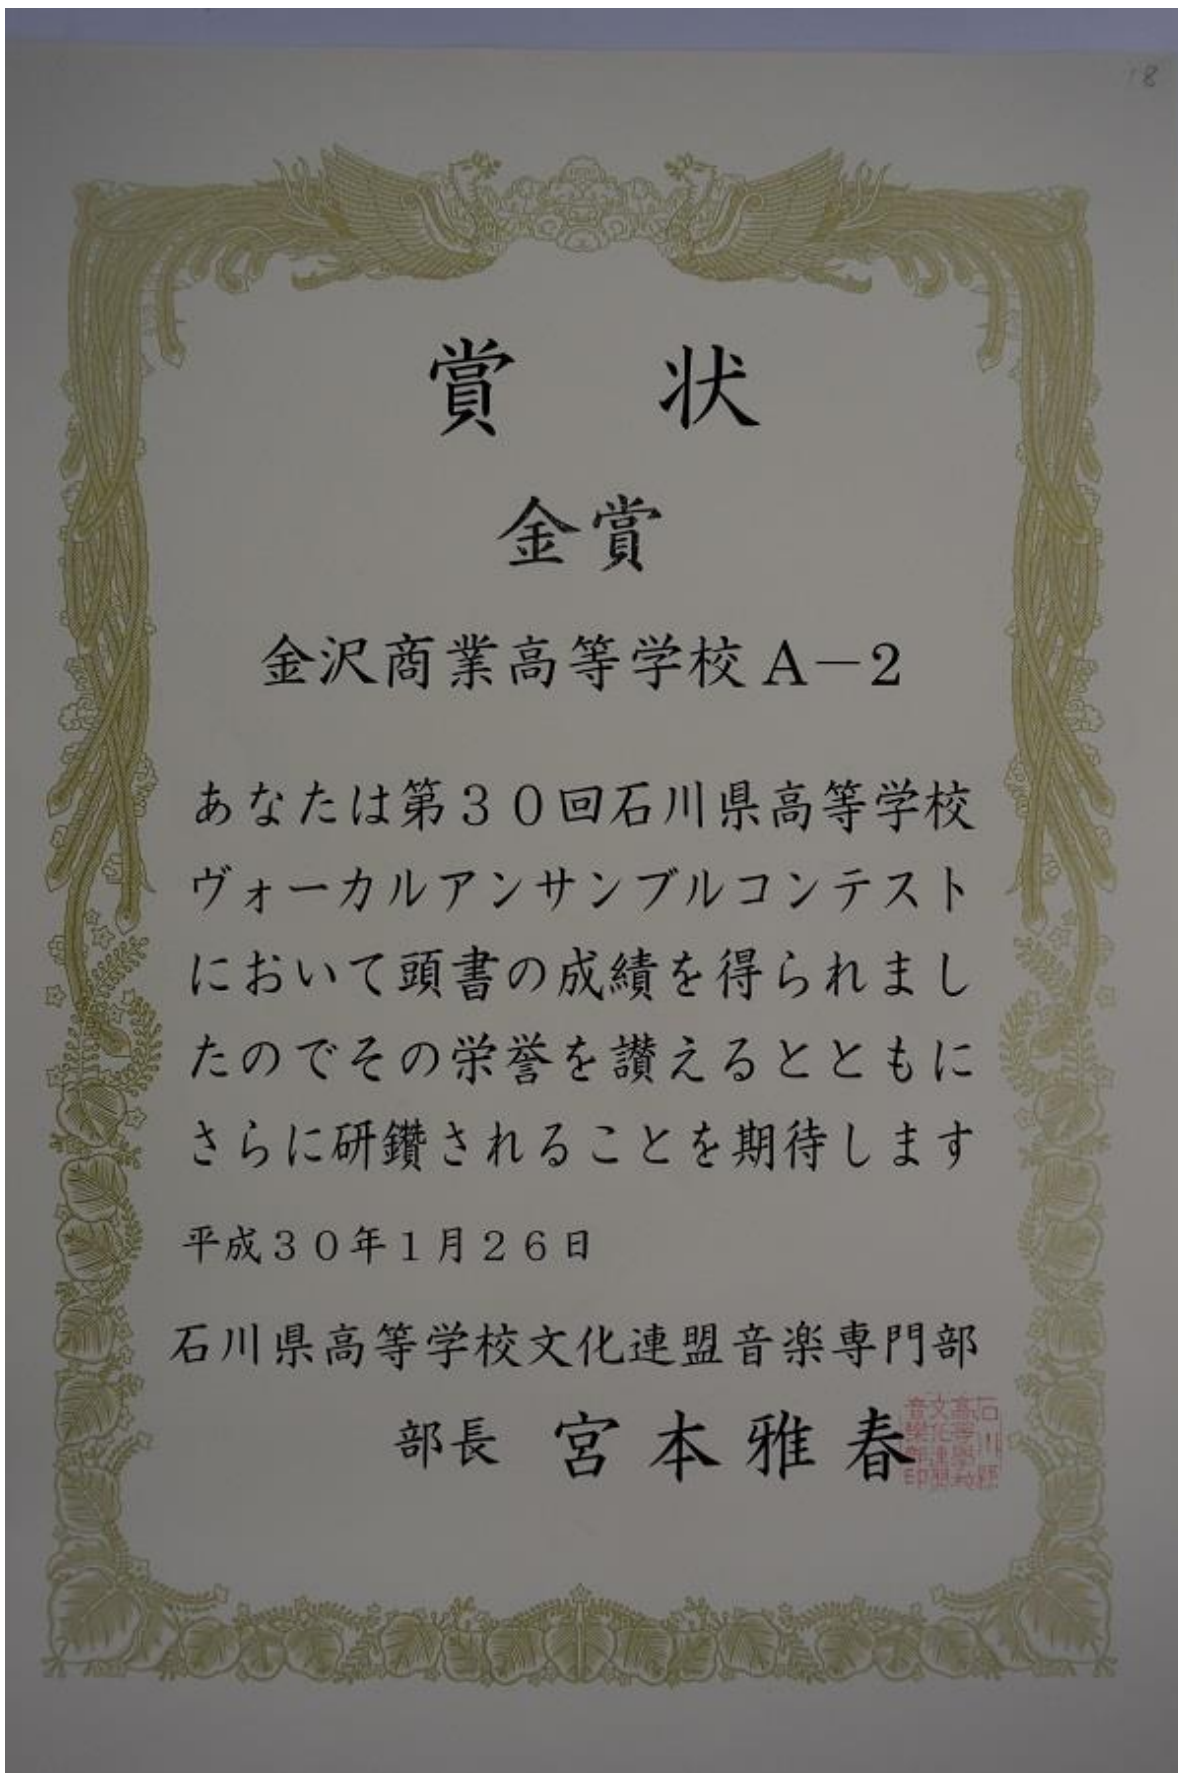 18
賞状
金賞
金沢商業高等学校A－2
あなたは第３０回石川県高等学校
ヴォーカルアンサンブルコンテスト
において頭書の成績を得られまし
たのでその栄誉を讃えるとともに
さらに研鑽されることを期待します
平成３０年１月２６日
石川県高等学校文化連盟音楽専門部
部長 宮本雅春